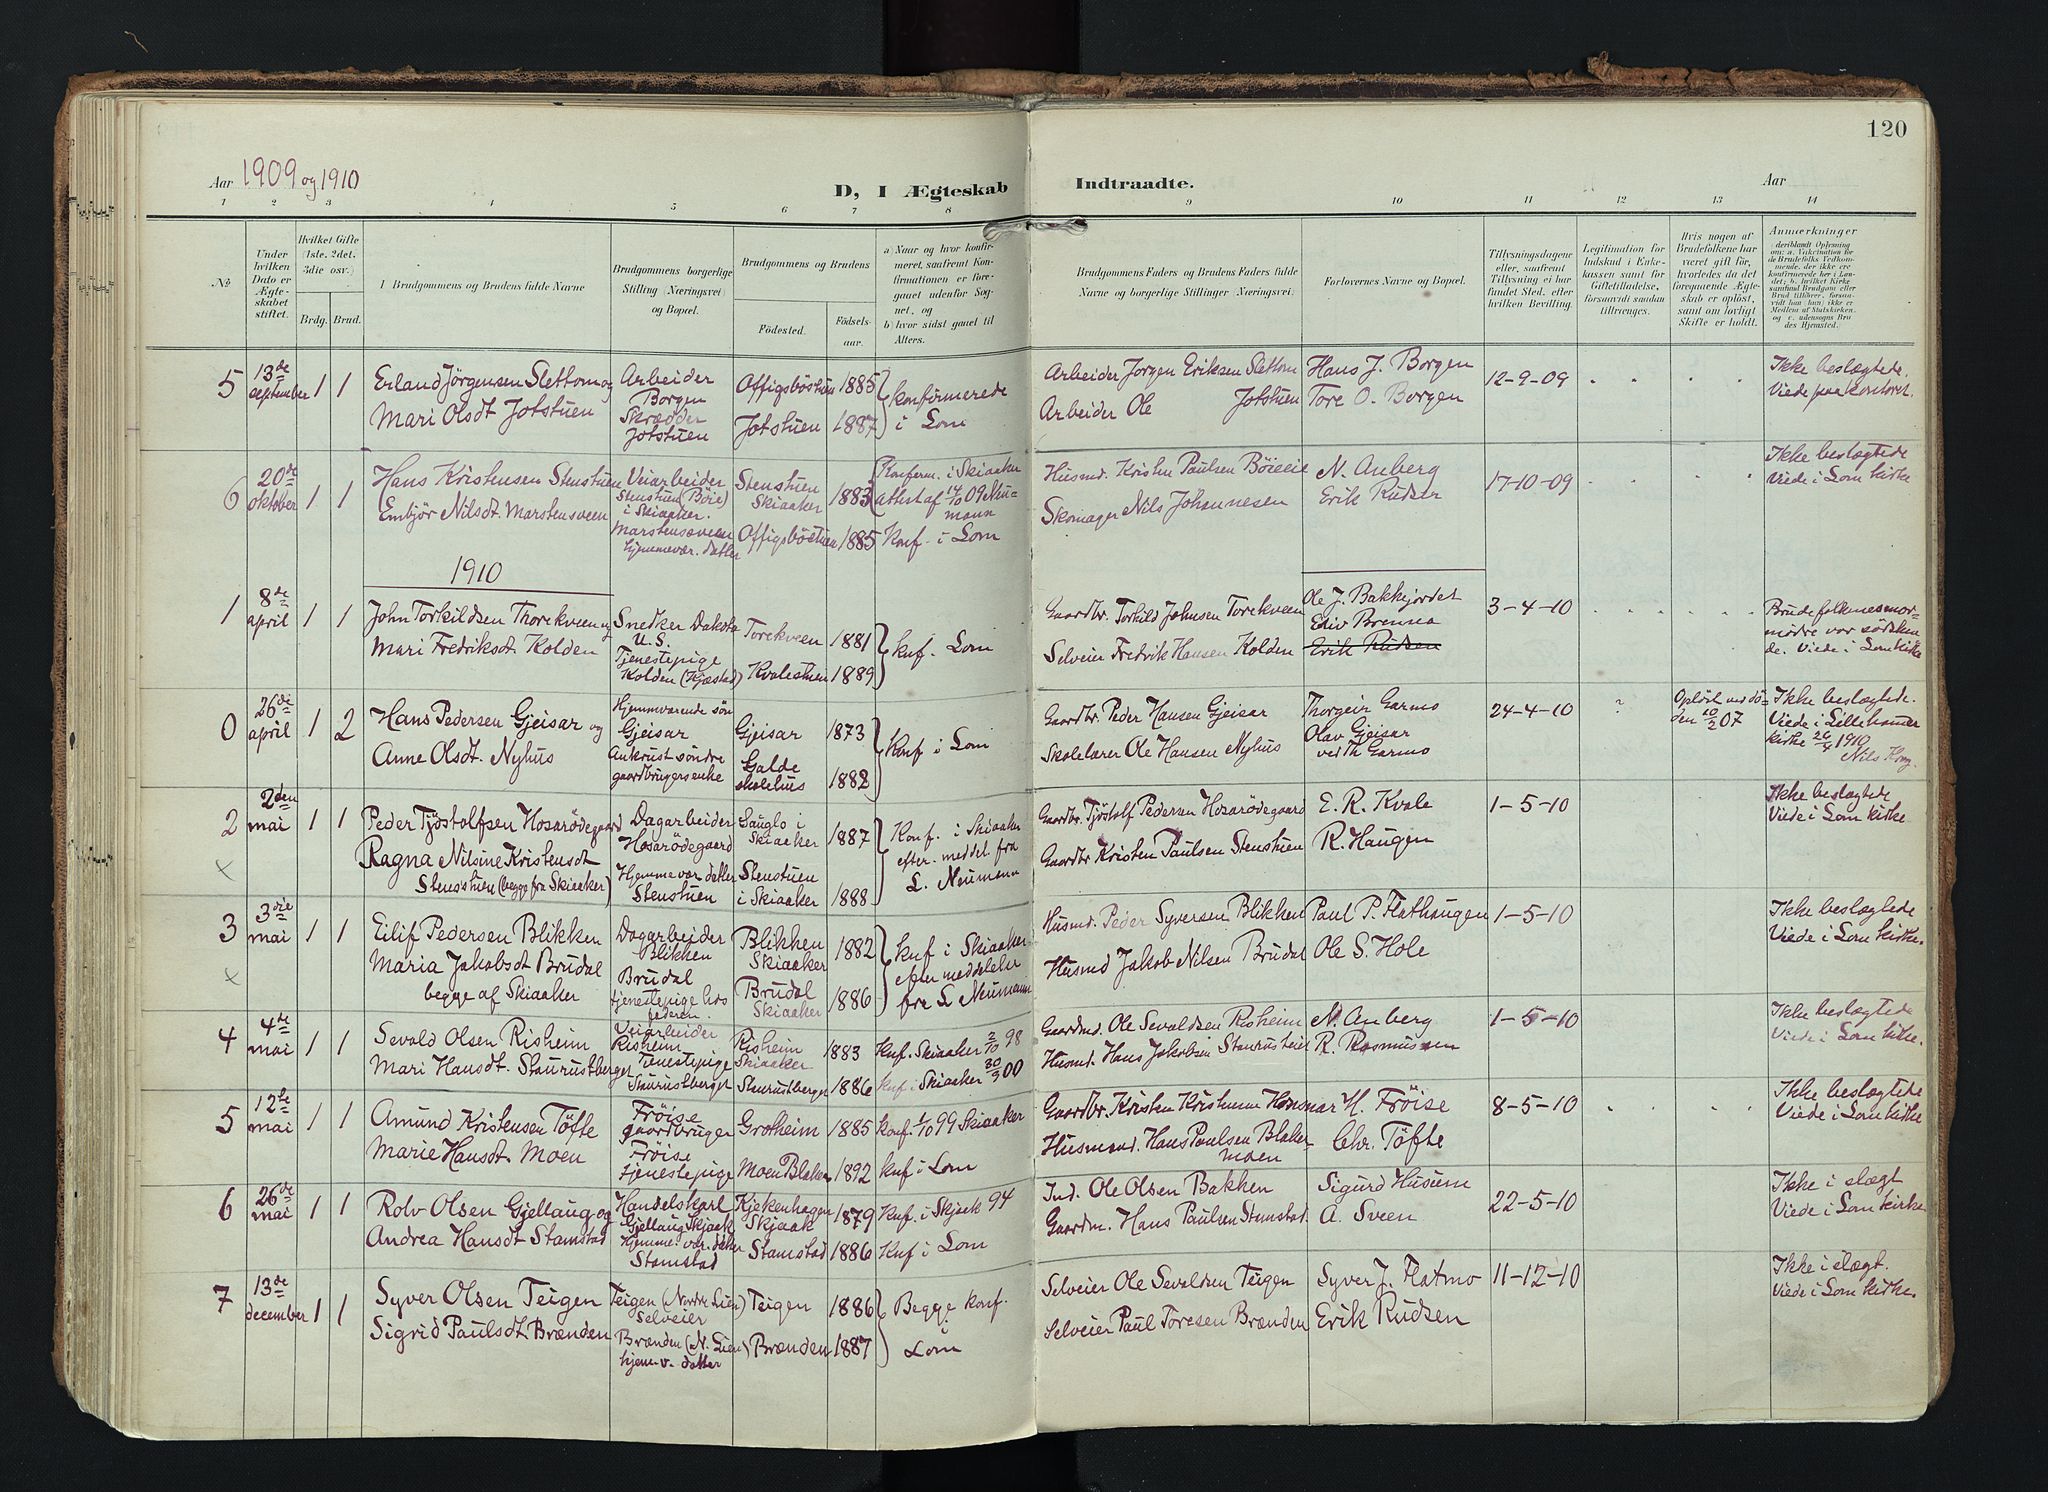 120
Aar 1909 og 1910
D, I Ægteskab Indtraadte.
Aar
1 2 3 4 5 6 7 8 9 10 11 12 13 14
No
Under hvilken Dato er Ægteskabet stiftet.
Hvilket Gifte (1ste, 2det, 3die osv.)
Brdg. Brud.
I Brudgommens og Brudens fulde Navne
Brudgommens borgerlige Stilling (Næringsvei) og Bopæl.
Brudgommens og Brudens
Födested.
Födselsaar.
a) Naar og hvor konfirmeret, saafremt Konfirmationen er foregaaet udenfor Sognet, og
b) hvor sidst gaaet til Alters.
Brudgommens Faders og Brudens Faders fulde Navne og borgerlige Stillinger (Næringsvei)
Forlovernes Navne og Bopæl.
Tillysningsdagene eller, saafremt Tillysning ei har fundet Sted, efter hvilken Bevilling.
Legitimation for Indskud i Enkekassen samt for Giftetilladelse, forsaavidt saadan tiltrænges.
Hvis nogen af Brudefolkene har været gift før, hvorledes da det foregaaende Ægteskab er opløst, samt om lovligt Skifte er holdt.
Anmærkninger
5 13de september 1 1
Erland Jörgensen Slettom og
Mari Olsdt Jotstuen
Arbeider
Borgen
Skrædder
Jotstuen
Offigsböstuen 1885
Jotstuen 1887
konfirmerede
i Lom
Arbeider Jørgen Eriksen Slettom
Arbeider Ole Jotstuen
Hans J. Borgen
Tore O. Borgen
12-9-09
Ikke beslægtede.
Viede paa kontoret.
6 20de oktober 1 1
Hans Kristensen Stenstuen
Embjör Nilsdt. Marstensveen
Veiarbeider
Stenstuen (Böie)
i Skiaaker.
Marstensveen
hjemmevær. datter
Stenstuen
Skiaaker 1883
Offigsböstuen 1885
Konferm. i Skiaaker
attest af 14/10 09 Neumann
Konf. i Lom
Husmd. Kristen Paulsen Böieeie
Skomager Nils Johannesen
N. Anberg
Erik Rudsen
17-10-09
Ikke beslægtede
Viede i Lom kirke
1910
1 8de april 1 1
John Torkildsen Thorekveen og
Mari Fredriksdt Kolden
Snedker Dakota
U.S.
Tjenestepige
Kolden (Kjæstad)
Torekveen 1881
Kvalestuen 1889
knf. Lom
Gaardbr. Torkild Johnsen Torekveen
Selveier Fredrik Hansen Kolden
Ole J. Bakkejordet
Eiliv Brenna
Erik Rudsen
3-4-10
Brudefolkenes mormødre var søskende. Viede i Lom kirke
0 26de april 1 2
Hans Pedersen Gjeisar og
Anne Olsdt. Nyhus
Hjemmværende søn
Gjeisar
Ankrust söndre
gaardbrugersenke
Gjeisar 1873
Galde
skolehus 1882
Konf i Lom
Gaardbr. Peder Hansen Gjeisar
Skolelærer Ole Hansen Nyhus
Thorgeir Garmo
Olav Gjeisar
ved Th Garmo
24-4-10
?
Opløst ved døden 10/2 07
Ikke beslægtede.
Viede i Lillehammer
kirke 26/4 1910
2 2den mai 1 1
×
Peder Tjöstolfsen Hosarödegaard
Ragna Nilsine Kristensdt
Stensstuen (begge fra Skiaaker)
Dagarbeider
Hosarödegaard
Hjemmevær datter
Stenstuen
Sauglo i
Skiaaker 1887
Stenstuen
i Skiaaker 1888
Konf. i Skiaaker
efter meddel. fra
L. Neumann
Gaardbr. Tjöstolf Pedersen Hosarödegaard
Gaardbr Kristen Paulsen Stenstuen
E. R. Kvale
R. Haugen
1-5-10
Ikke beslægtede
Viede i Lom kirke
3 3die mai 1 1
×
Eilif Pedersen Blikken
Maria Jakobsdt Brudal
begge af Skiaaker
Dagarbeider
Blikken
Brudal
tjenestepige hos
federen.
Blikken
Skiaaker 1882
Brudal
Skiaaker 1886
knf i Skiaaker
efter meddelelse
fra L. Neumann
Husmd. Peder Syversen Blikken
Husmd Jakob Nilsen Brudal
Paul P. Flathaugen
Ole S. Hole
1-5-10
Ikke beslægtede
Viede i Lom kirke.
4 4de mai 1 1
Sevald Olsen Risheim
Mari Hansdt. Staurustberget
Veiarbeider
Risheim
Tjenestepige
Staurustberget
Risheim
Skiaaker 1883
Staurustberget 1886
Knf. Skiaaker 2/10 98
knf i Skiaaker 30/9 00
Gaardmd. Ole Sevaldsen Risheim
Husmd. Hans Jakobsen Staurusteie
N. Anberg
R. Rasmussen
1-5-10
Ikke beslægtede
Viede i Lom kirke.
5 12te mai 1 1
Amund Kristensen Töfte
Marie Hansdt. Moen
Fröise
gaardbruger
Fröise
tjenestepige
Grotheim 1885
Moen Blaker 1892
konf. 1/10 99 Skiaaker
knf i Lom
Gaardbr. Kristen Kristensen
Husmand. Hans Paulsen Blakermoen
H. Fröise
Chr. Töfte
8-5-10
Ikke beslægtede
Viede i Lom kirke
6 26de mai 1 1
Rolv Olsen Gjellaug og
Andrea Hansdt Stamstad
Handelskarl
Gjellaug Skjaak
Hjemme vær. datter
Stamstad
Kjekenhagen
Skjaak 1879
Stamstad 1886
Knf. i Skjaak 94
Knf i Lom
Ind. Ole Olsen Bakken
Gaardm. Hans Paulsen Stamstad.
Sigurd Husum
A. Sveen
22-5-10
Ikke i slægt
Viede i Lom kirke
7 13de december 1 1
Syver Olsen Teigen
Sigrid Paulsdt. Brænden
Teigen (Nordre Lien)
Selveier
Brænden (N. Lien)
hjem. v. datter
Teigen 1886
Brænden 1887
Begge konf.
i
Lom
Selveier Ole Sevaldsen Teigen
Selveier Paul Toresen Brænden
Syver J. Flatmo
Erik Rudsen
11-12-10
Ikke i slægt.
Viede i Lom kirke.